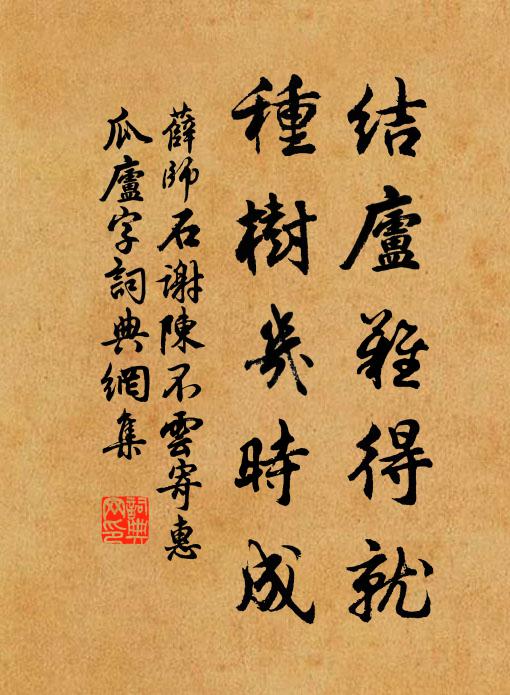 結廬難得就
種樹幾時成
薛師石謝陳不雲寄惠
瓜廬字詞典網集
詞典網印